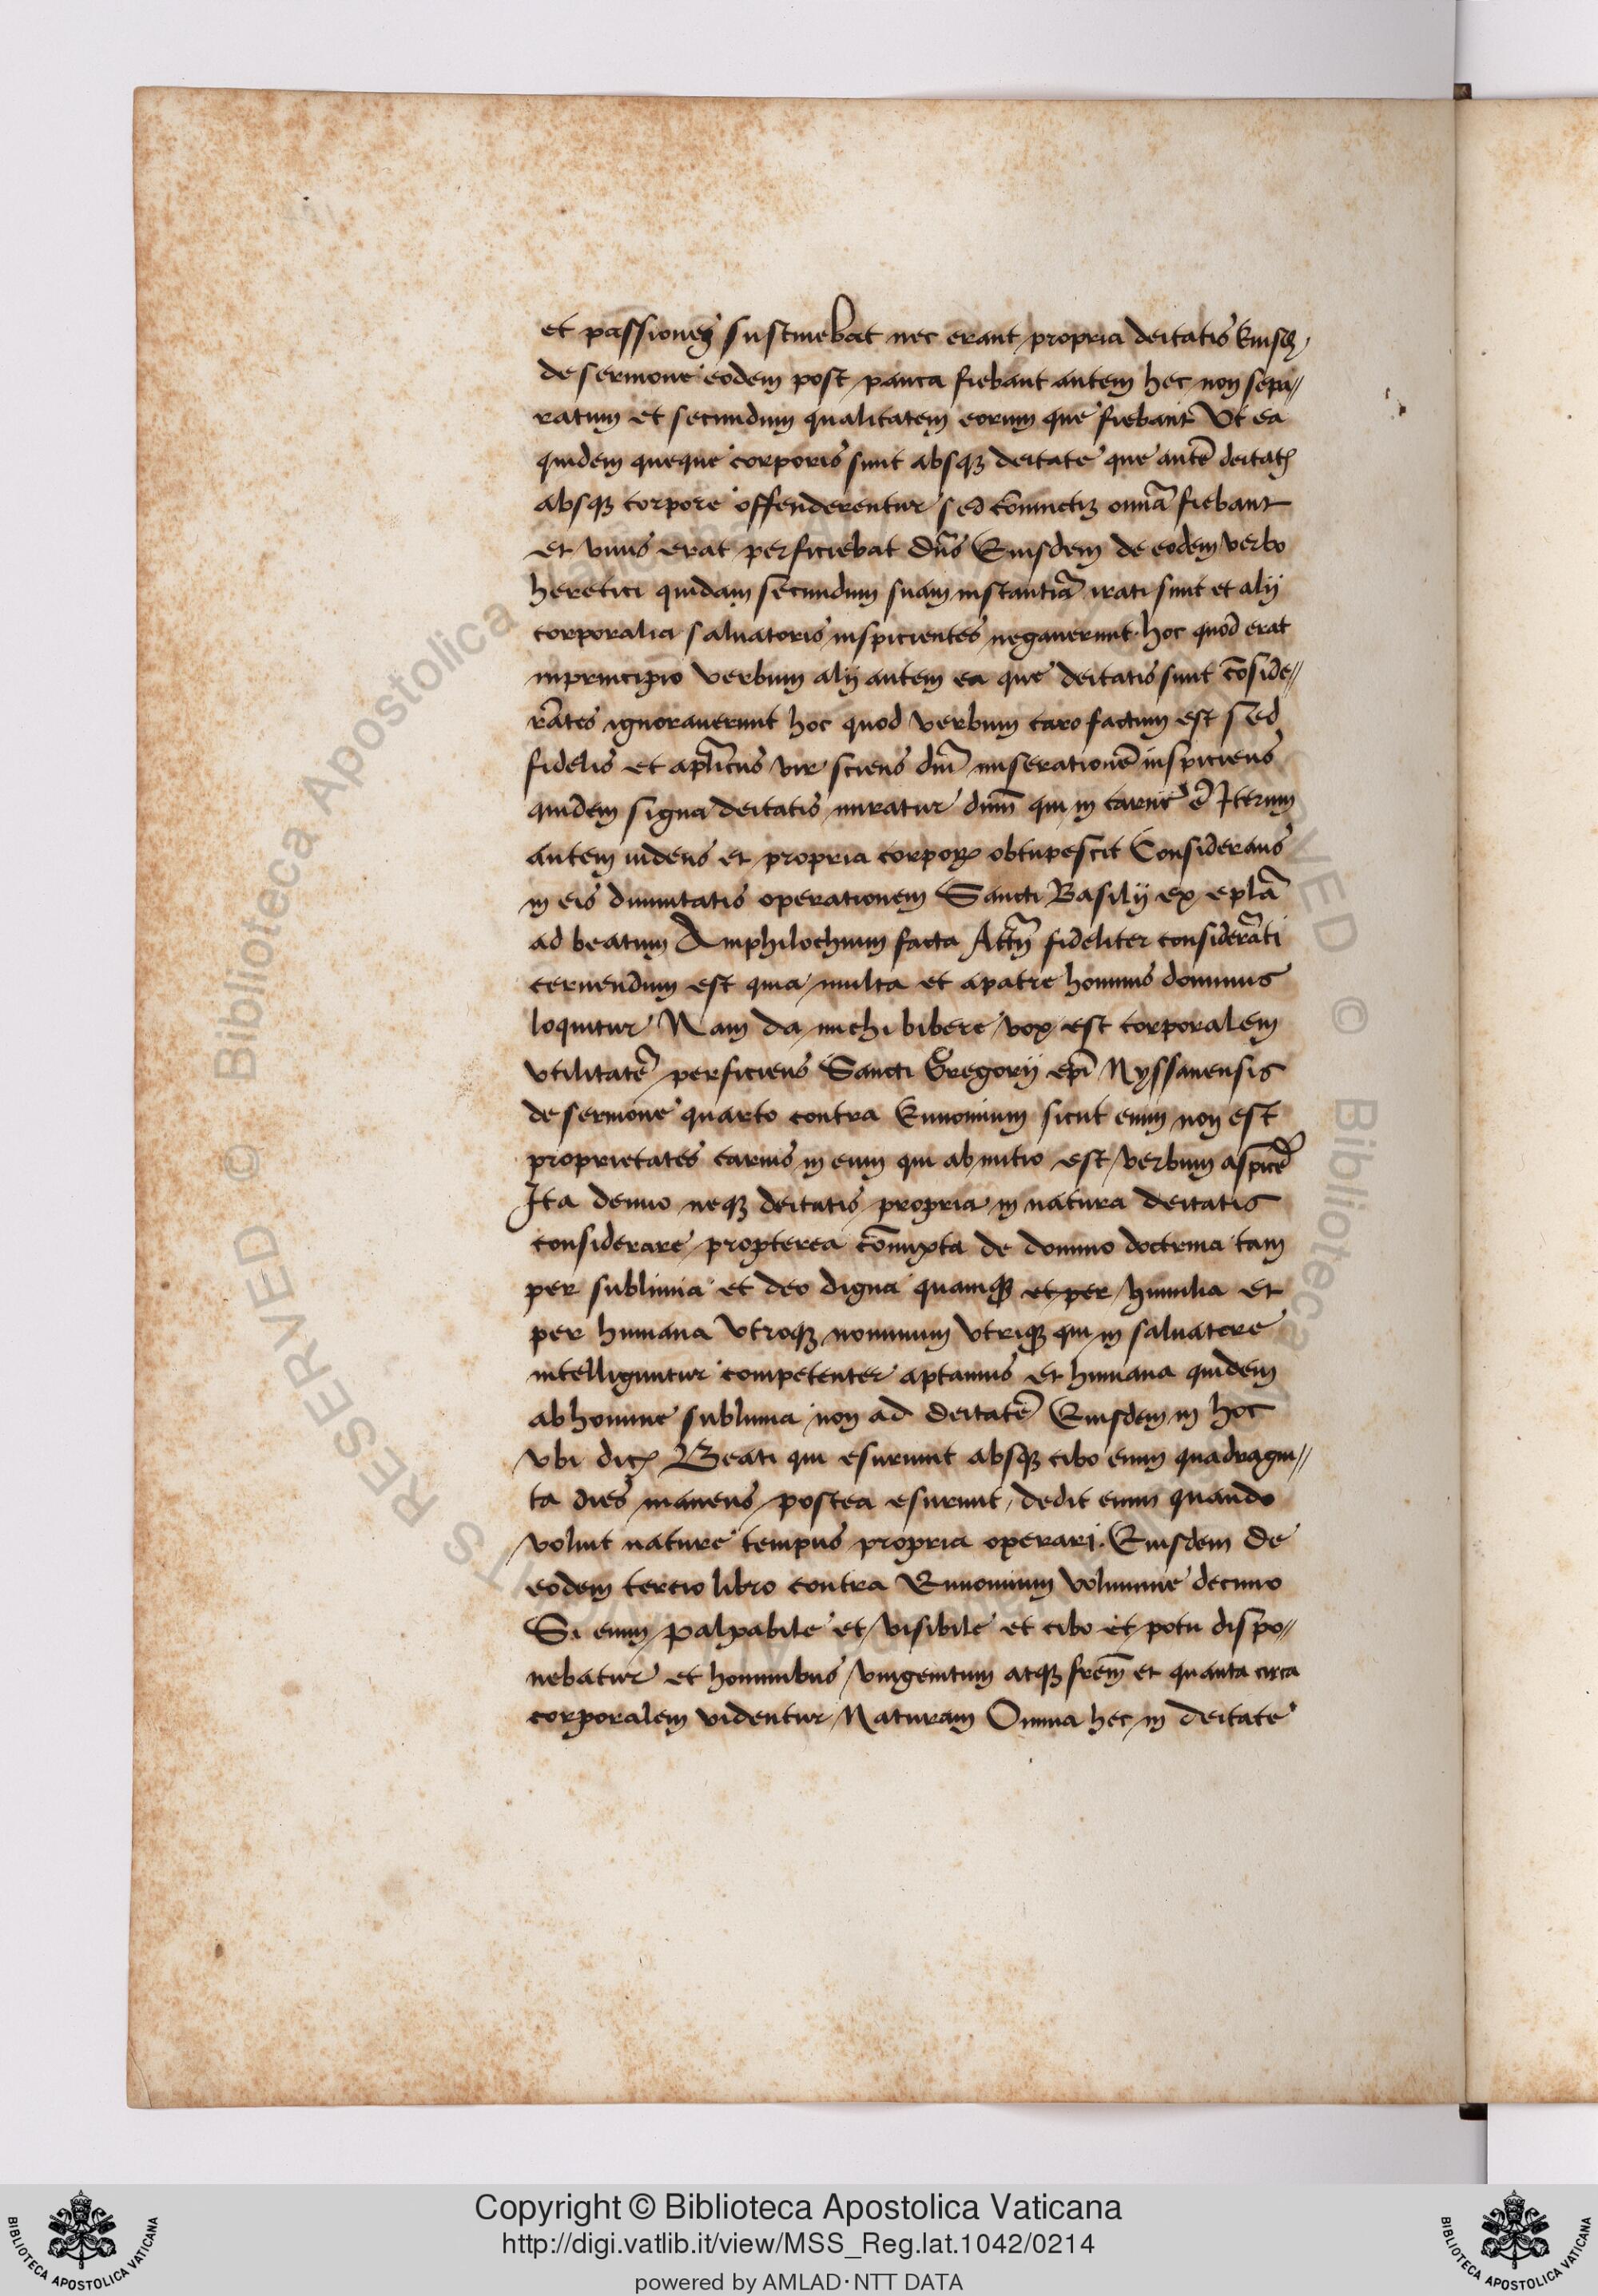 et passiones sustinebat nec erant propria deitatis Eiusdem
de sermone eodem post pauca fiebant autem hec non sepa//
ratum et secundum qualitatem eorum que fiebant Ut ea
quidem queque corporis sunt absqꝫ deitate que autē deitatꝭ
absqꝫ corpore offenderentur sed cōiunctiꝫ omīa fiebant
et unus erat perficiebat dn̄s Eiusdem de eodem verbo
heretici quidam secundum suam instantiā irati sunt et alij
corporalia saluatoris inspicientes negauerunt hoc quod erat
inprincipio verbum alij autem ea que deitatis sunt cōside//
rātes ignorauerunt hoc quod verbum caro factum est sed
fidelis et apl̄icus vir sciens dn̄i miserationē inspiciens
quidem signa deitatis miratur dn̄m qui in carne ē Iterum
autem uidens et propria corporꝭ obtupescit Considerans
in eis diuinitatis operationem Sancti Basilij ex epl̄a
ad beatum Amphilochium facta fideliter considerāti
cernendum est quia multa et apatre hominis dominus
loquitur Nam da michi bibere vox est corporalem
vtilitatē perficiens Sancti Gregorij epī Nyssanensis
de sermone quarto contra Eunomium sicut enim non est
proprietates carnis in eum qui abinitio est verbum aspicē
Ita denuo neqꝫ deitatis propria in natura deitatis
considerare propterea cōmixta de domino doctrina tam
per sublimia et deo digna quamqꝫ et per humilia et
per humana vtroqꝫ nominum vtriqꝫ qui in saluatore
intelliguntur competenter aptamus et humana quidem
abhomine sublimia non ad deitatē Eiusdem in hoc
vbi dicꝭ Beati qui esuriunt absqꝫ cibo enim quadragin//
ta dies manens postea esuriunt, dedit enim quando
voluit nature tempus propria operari. Eiusdem de
eodem tercio libro contra Eunomium volumine decimo
Si enim palpabile et visibile et cibo et potu dispo//
nebatur et hominibus vnigenitum atqꝫ frēm et quanta circa
corporalem videntur Naturam Omnia hec in deitate
© Biblioteca Apostolica Vaticana
Copyright © Biblioteca Apostolica Vaticana
http://digi.vatlib.it/view/MSS_Reg.lat.1042/0214
powered by AMLAD·NTT DATA
BIBLIOTECA APOSTOLICA VATICANA
BIBLIOTECA APOSTOLICA VATICANA